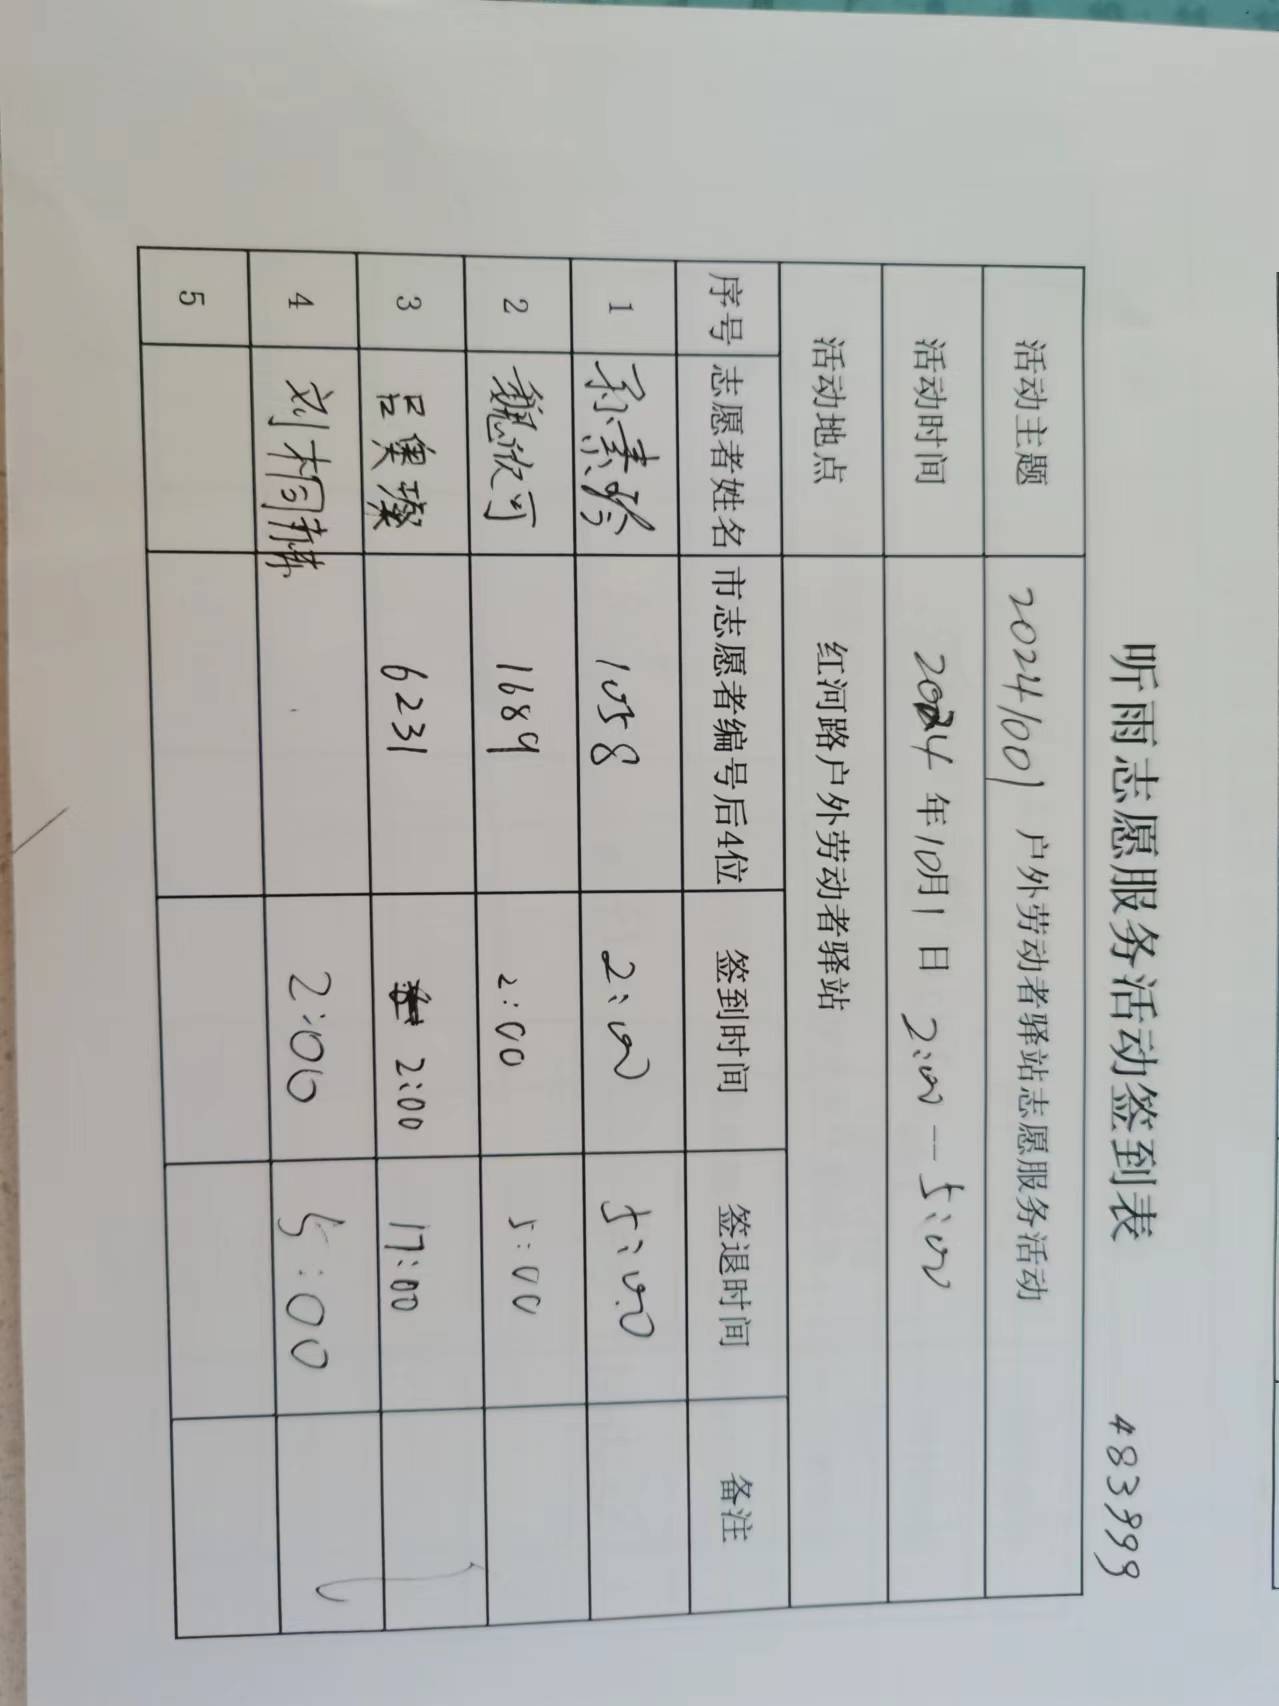 听雨志愿服务活动签到表 483999
活动主题 20241001 户外劳动者驿站志愿服务活动
活动时间 2024年10月1日 2:00—5:00
活动地点 红河路户外劳动者驿站
序号 志愿者姓名 市志愿者编号后4位 签到时间 签退时间 备注
1 孙素玲 1058 2:00 5:00
2 魏欣可 1689 2:00 5:00
3 吕奥璨 6231 2:00 17:00
4 刘桐 2:00 5:00
5